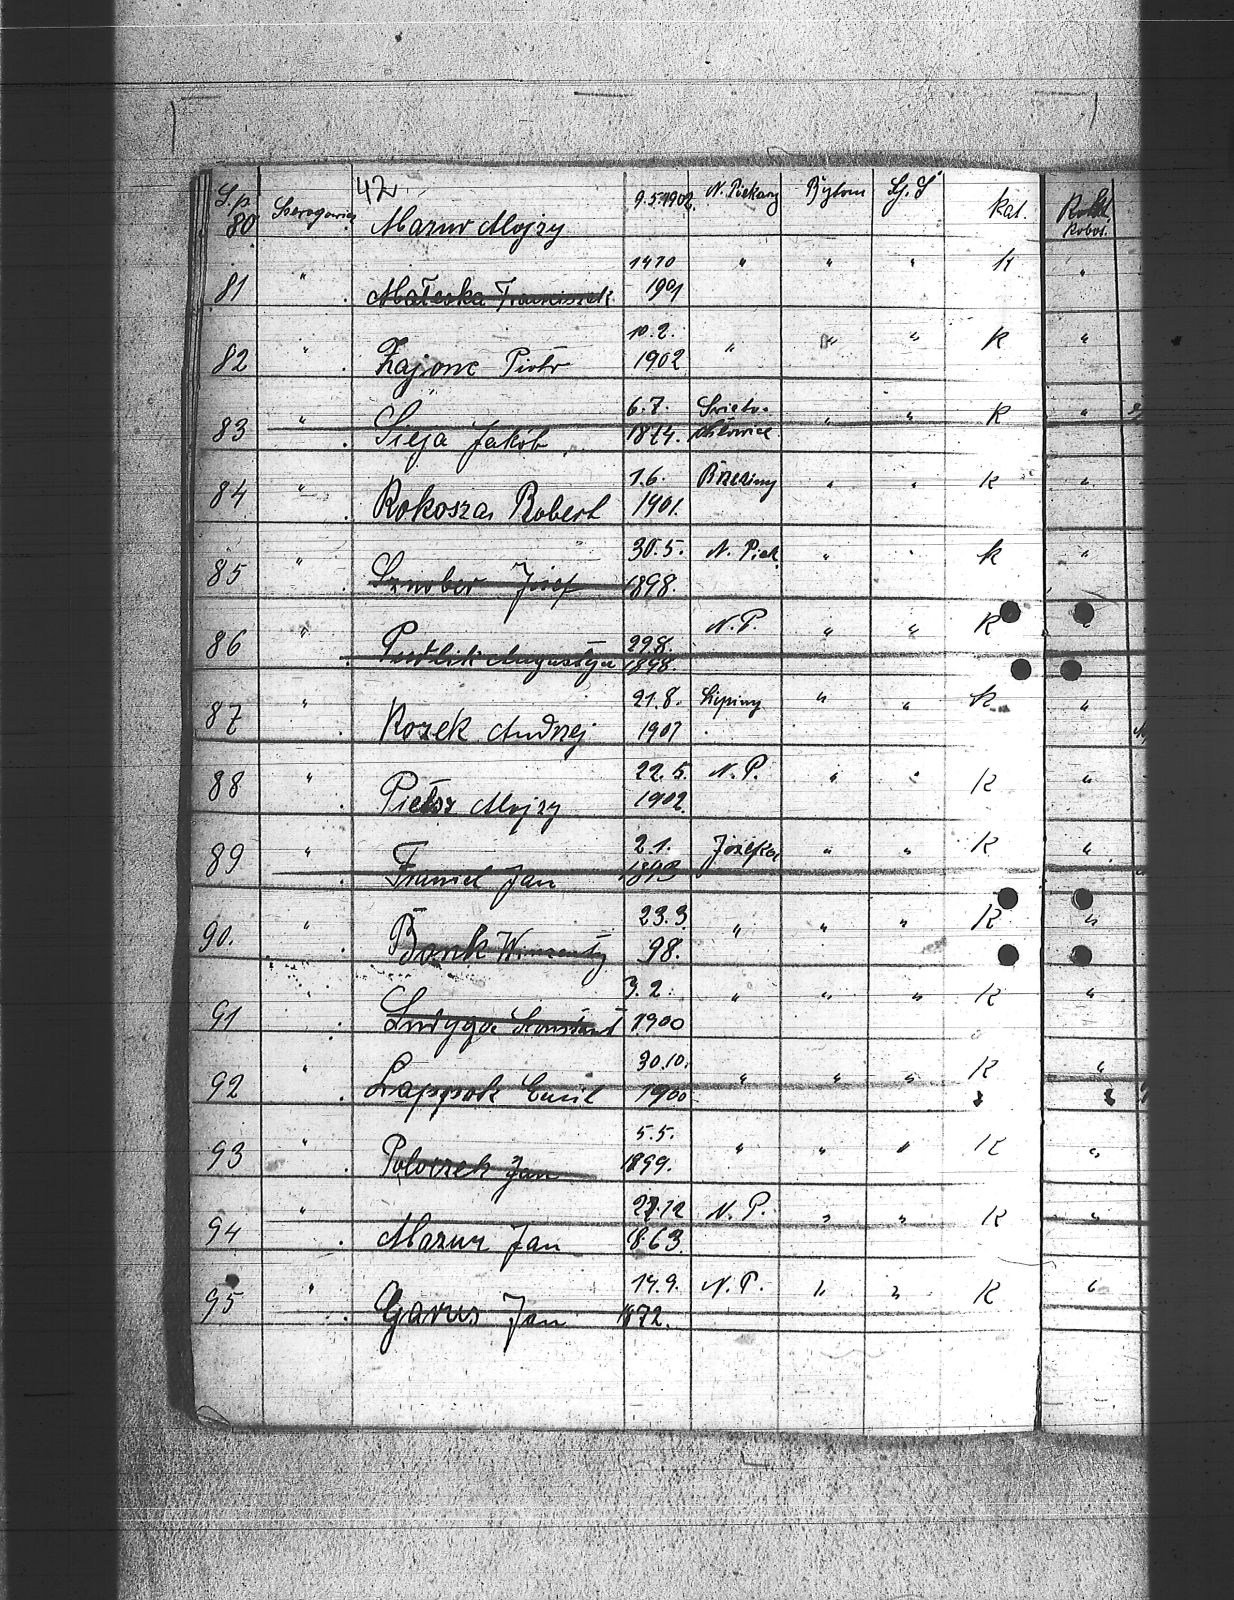 L.p. 42
80 Szeregowiec Mazur Alojzy 9.5.1902. N. Piekary Bytom G. Ś kat. Robot.
81 " Małeska Franciszek 14 10 1901 " " " k "
82 " Zajonc Piotr 10.2. 1902 " " " K "
83 " Sieja Jakób 6.7. 1874. Święto- chłowice " " K "
84 " Rokosza Robert 1.6. 1901. Brzeziny " " K "
85 " Sznober Józef 30.5. 1898. N. Piek. " " k "
86 " Augustyn 29.8. 1898. N.P. " " K "
87 " Rozek Andrzej 21.8. 1901 Lipiny " " k "
88 " Pietsz Alojzy 22.5. 1902. N.P. " " K "
89 " Franiel Jan 2.1. 1893 Józefka " " K "
90. " Bonk Wincenty 23.3. 98. " " " K "
91 " Ludyga Konstant 3.2. 1900 " " " K "
92 " Lappok Emil 30.10. 1900 " " " K "
93 " Poloczek Jan 5.5. 1899. " " " K "
94 " Mazur Jan 27.12 863. N.P. " " K "
95 " Garus Jan 14.9. 1872. N.P. " " K "